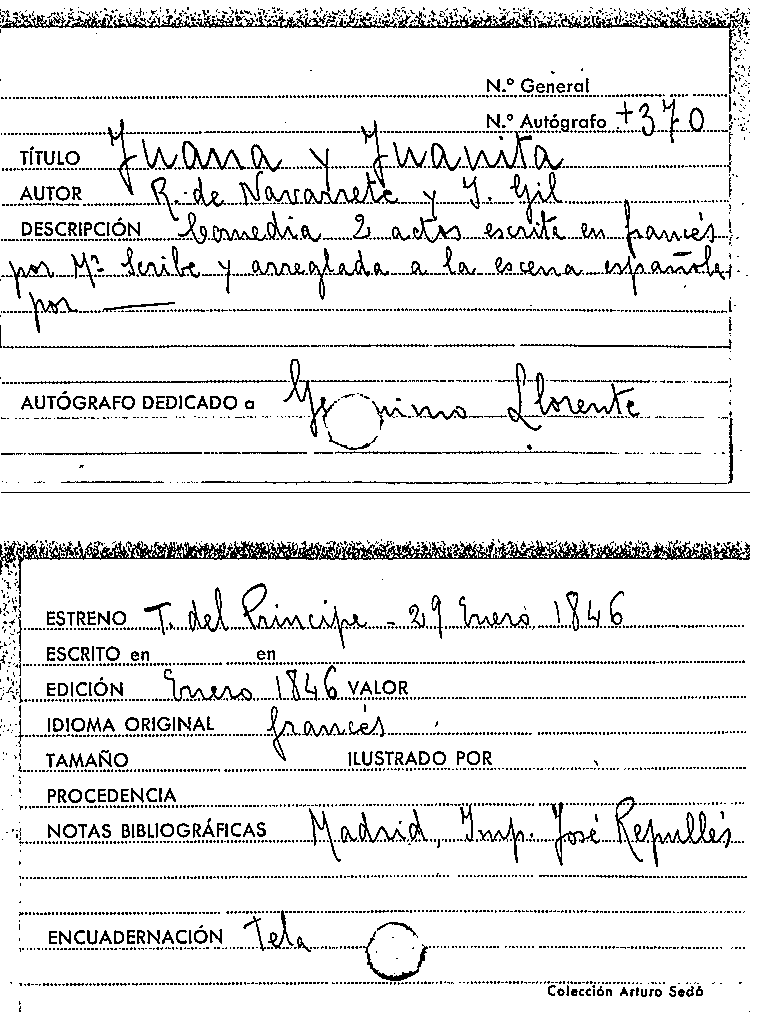 N.º General
N.º Autógrafo +370
TÍTULO Juana y Juanita
AUTOR R. de Navarrete y J. Gil
DESCRIPCIÓN Comedia 2 actos escrita en francés
por Mr. Scribe y arreglada a la escena española
por ———
AUTÓGRAFO DEDICADO a Geronimo Llorente
ESTRENO T. del Principe - 29 Enero 1846
ESCRITO en en
EDICIÓN Enero 1846 VALOR
IDIOMA ORIGINAL francés
TAMAÑO ILUSTRADO POR
PROCEDENCIA
NOTAS BIBLIOGRÁFICAS Madrid, Imp. José Repullés
ENCUADERNACIÓN Tela
Colección Arturo Sedó